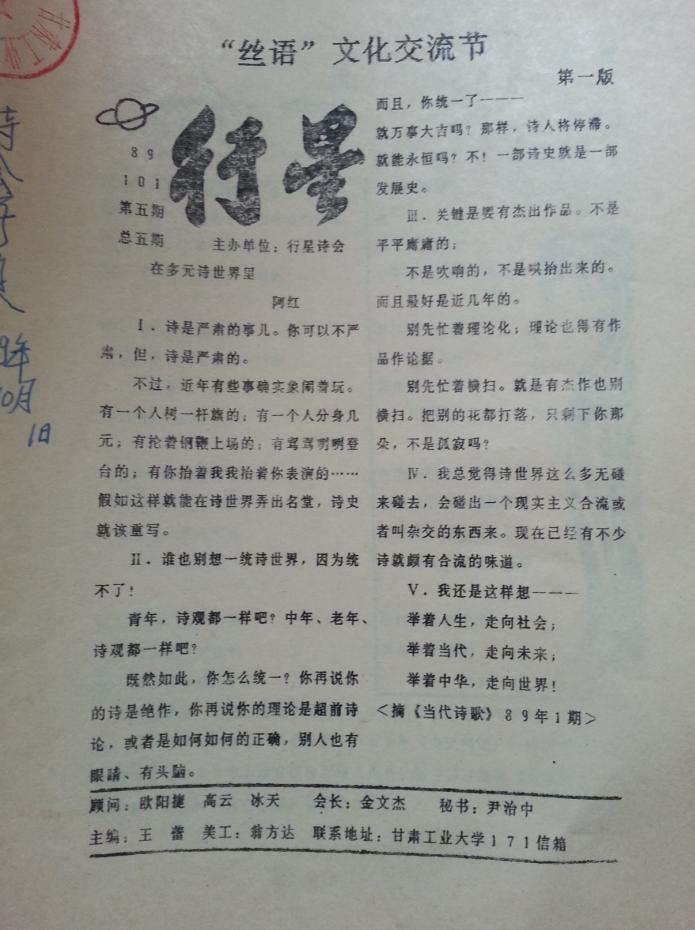 “丝语”文化交流节
第一版
行星
89
101
第五期
总五期
主办单位：行星诗会
在多元诗世界里
阿红
Ⅰ．诗是严肃的事儿。你可以不严
肃，但，诗是严肃的。
不过，近年有些事确实象闹着玩。
有一个人树一杆旗的；有一个人分身几
元；有抡着钢鞭上场的；有骂骂咧咧登
台的；有你抬着我我抬着你表演的……
假如这样就能在诗世界弄出名堂，诗史
就该重写。
Ⅱ．谁也别想一统诗世界，因为统
不了！
青年，诗观都一样吧？中年、老年、
诗观都一样吧？
既然如此，你怎么统一？你再说你
的诗是绝作，你再说你的理论是超前诗
论，或者是如何如何的正确，别人也有
眼睛、有头脑。
而且，你统一了————
就万事大吉吗？那样，诗人将停滞。
就能永恒吗？不！一部诗史就是一部
发展史。
Ⅲ．关键是要有杰出作品。不是
平平庸庸的；
不是吹响的，不是哄抬出来的。
而且最好是近几年的。
别先忙着理论化；理论也得有作
品作论据。
别先忙着横扫。就是有杰作也别
横扫。把别的花都打落，只剩下你那
朵，不是孤寂吗？
Ⅳ．我总觉得诗世界这么多元碰
来碰去，会碰出一个现实主义合流或
者叫杂交的东西来。现在已经有不少
诗就颇有合流的味道。
Ⅴ．我还是这样想————
举着人生，走向社会；
举着当代，走向未来；
举着中华，走向世界！
＜摘《当代诗歌》89年1期＞
顾问：欧阳捷 高云 冰天 会长：金文杰 秘书：尹治中
主编：王 蕾 美工：翁方达 联系地址：甘肃工业大学171信箱
10月
1日